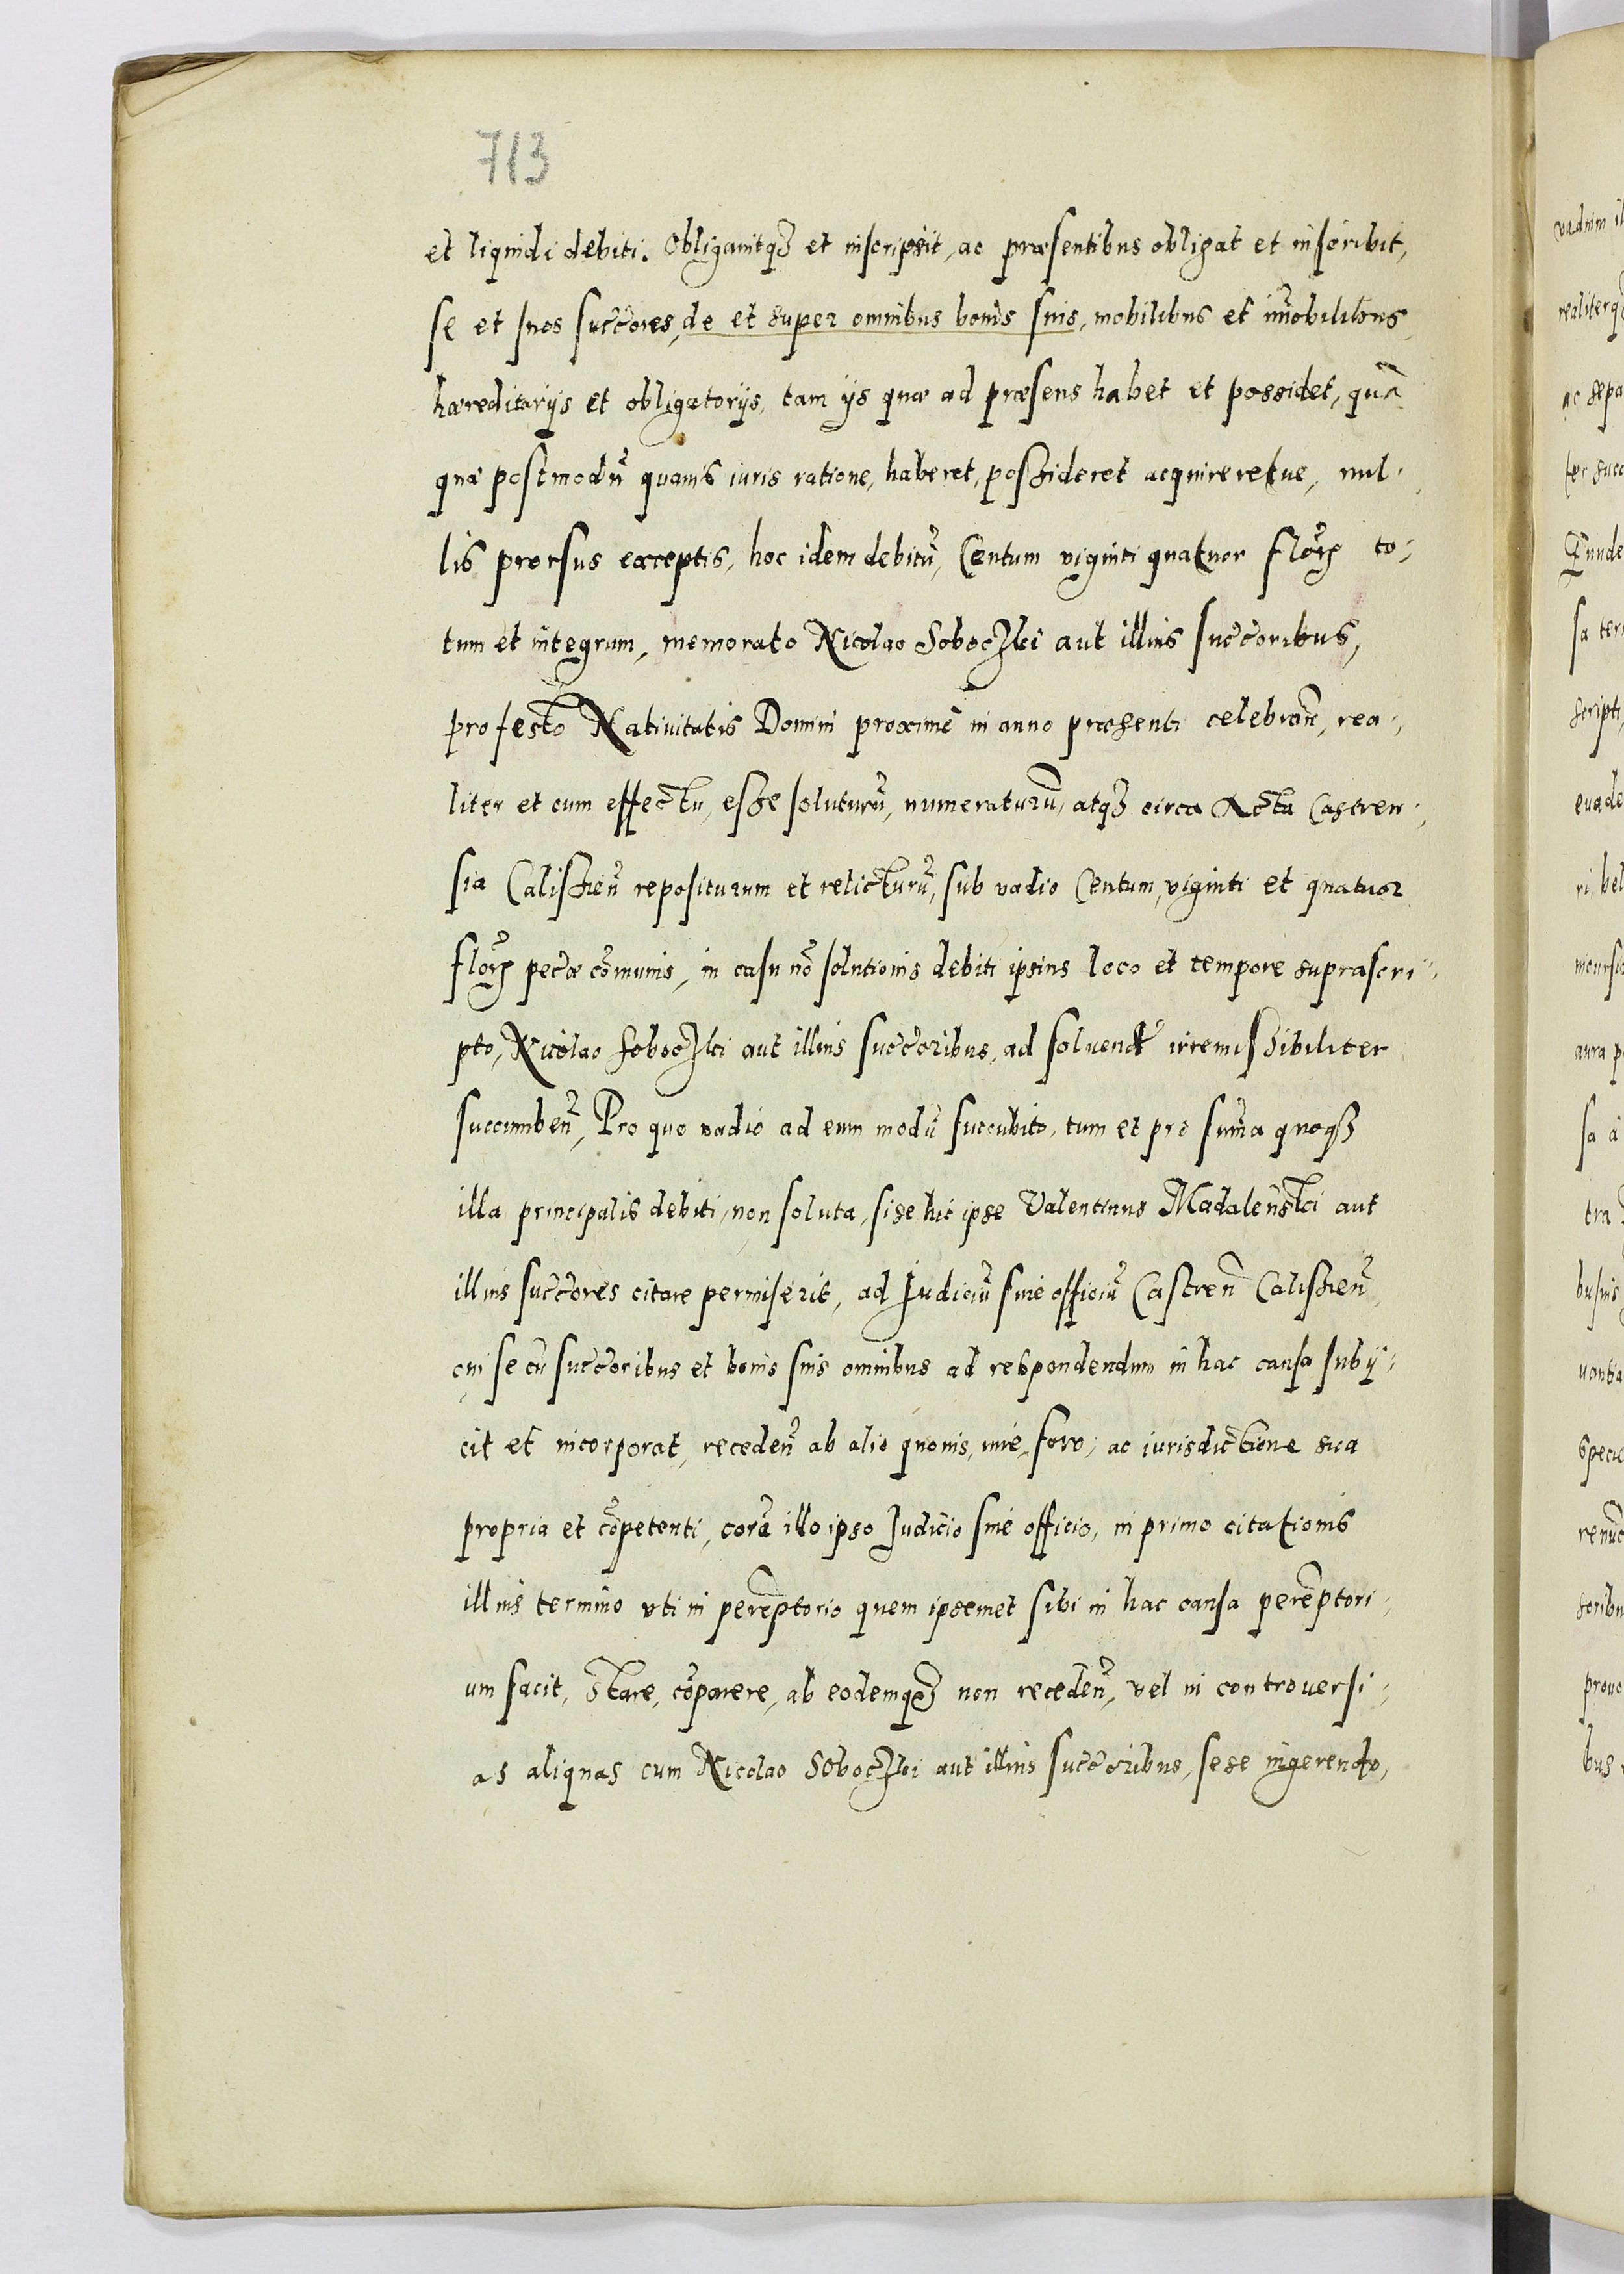 713
et liquidi debiti. Obligauitqȝ et inscripsit, ac præsentibus obligat et inscribit,
se et suos succ̃ores, de et super omnibus bonis suis, mobilibus et im̃obilibus
hæreditarijs et obligatorijs, tam ijs quæ ad præsens habet et possidet, quã
quæ postmodũ quauis iuris ratione, haberet, possideret acquireretue, nul-
lis prorsus exceptis, hoc idem debitũ, Centum viginti quatuor flõꝝ to-
tum et integrum, memorato Nicolao Soboczki aut illius succ̃oribus,
pro festo Natiuitatis Domini proximè in anno præsenti celebrañ, rea-
liter et cum effectu, esse soluturũ, numeraturũ, atqȝ circa Acta Castren-
sia Calissieñ repositurum et relicturũ, sub vadio Centum, viginti et quatuor
flõꝝ pec̃æ cõmunis, in casu nõ solutionis debiti ipsius loco et tempore suprascri-
pto, Nicolao Soboczki aut illius succ̃oribus, ad soluend̃ irremissibiliter
succumbeñ, Pro quo vadio ad eum modũ succubito, tum et pro sum̃a quoqȝ
illa principalis debiti, non soluta, si se hic ipse Valentinus Madalenski aut
illius succ̃ores citare permiserit, ad Iudiciũ siue officiũ Castreñ Calissieñ
cui se cũ succ̃oribus et bonis suis omnibus ad respondendum in hac causa subij-
cit et incorporat, recedeñ ab alio quouis, siue foro, ac iurisdictione sua
propria et cõpetenti, corã illo ipso Iudicio siue officio, in primo citationis
illius termino vti in perẽptorio quem ipsemet sibi in hac causa perẽptori-
um facit, Stare, cõparere, ab eodemqȝ non recedeñ, vel in controuersi-
as aliquas cum Nicolao Soboczki aut illius succ̃oribus, sese ingerendo,